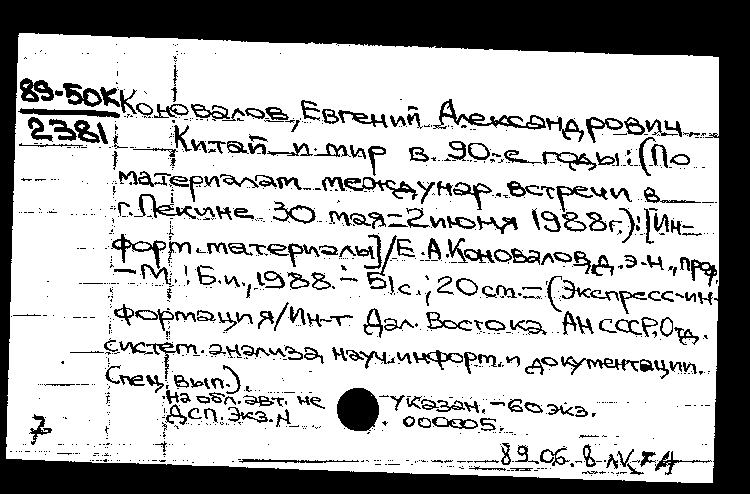 89-50К
2381
Коновалов, Евгений Александрович
Китай и мир в 90-е годы: (По
материалам междунар. встречи в
г. Пекине 30 мая-2 июня 1988г.): [Ин-
форм. материалы] / Е.А. Коновалов, д.э.н., проф.
- М.: Б.и., 1988. - 51с.; 20 cm. - (Экспресс-ин-
формация / Ин-т Дал. Востока АН СССР, Отд.
систем. анализа, науч. информ. и документации.
Спец. вып.).
На обл. авт. не указан. - 60 экз.
ДСП. Экз. N 000005.
7
89.06.8